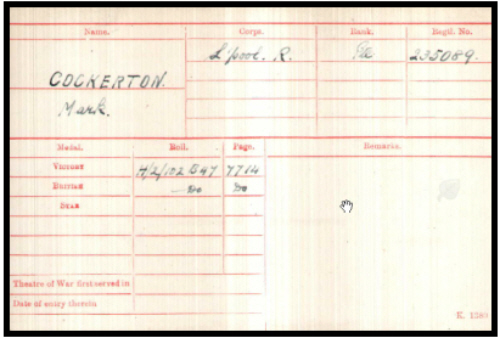 Name. Corps. Rank. Regtl. No.
COCKERTON. L'pool. R. Pte 235089.
Mark.
Medal. Roll. Page. Remarks.
VICTORY H/2/102 B47 7714
BRITISH —Do Do
STAR
Theatre of War first served in
Date of entry therein
K. 1380